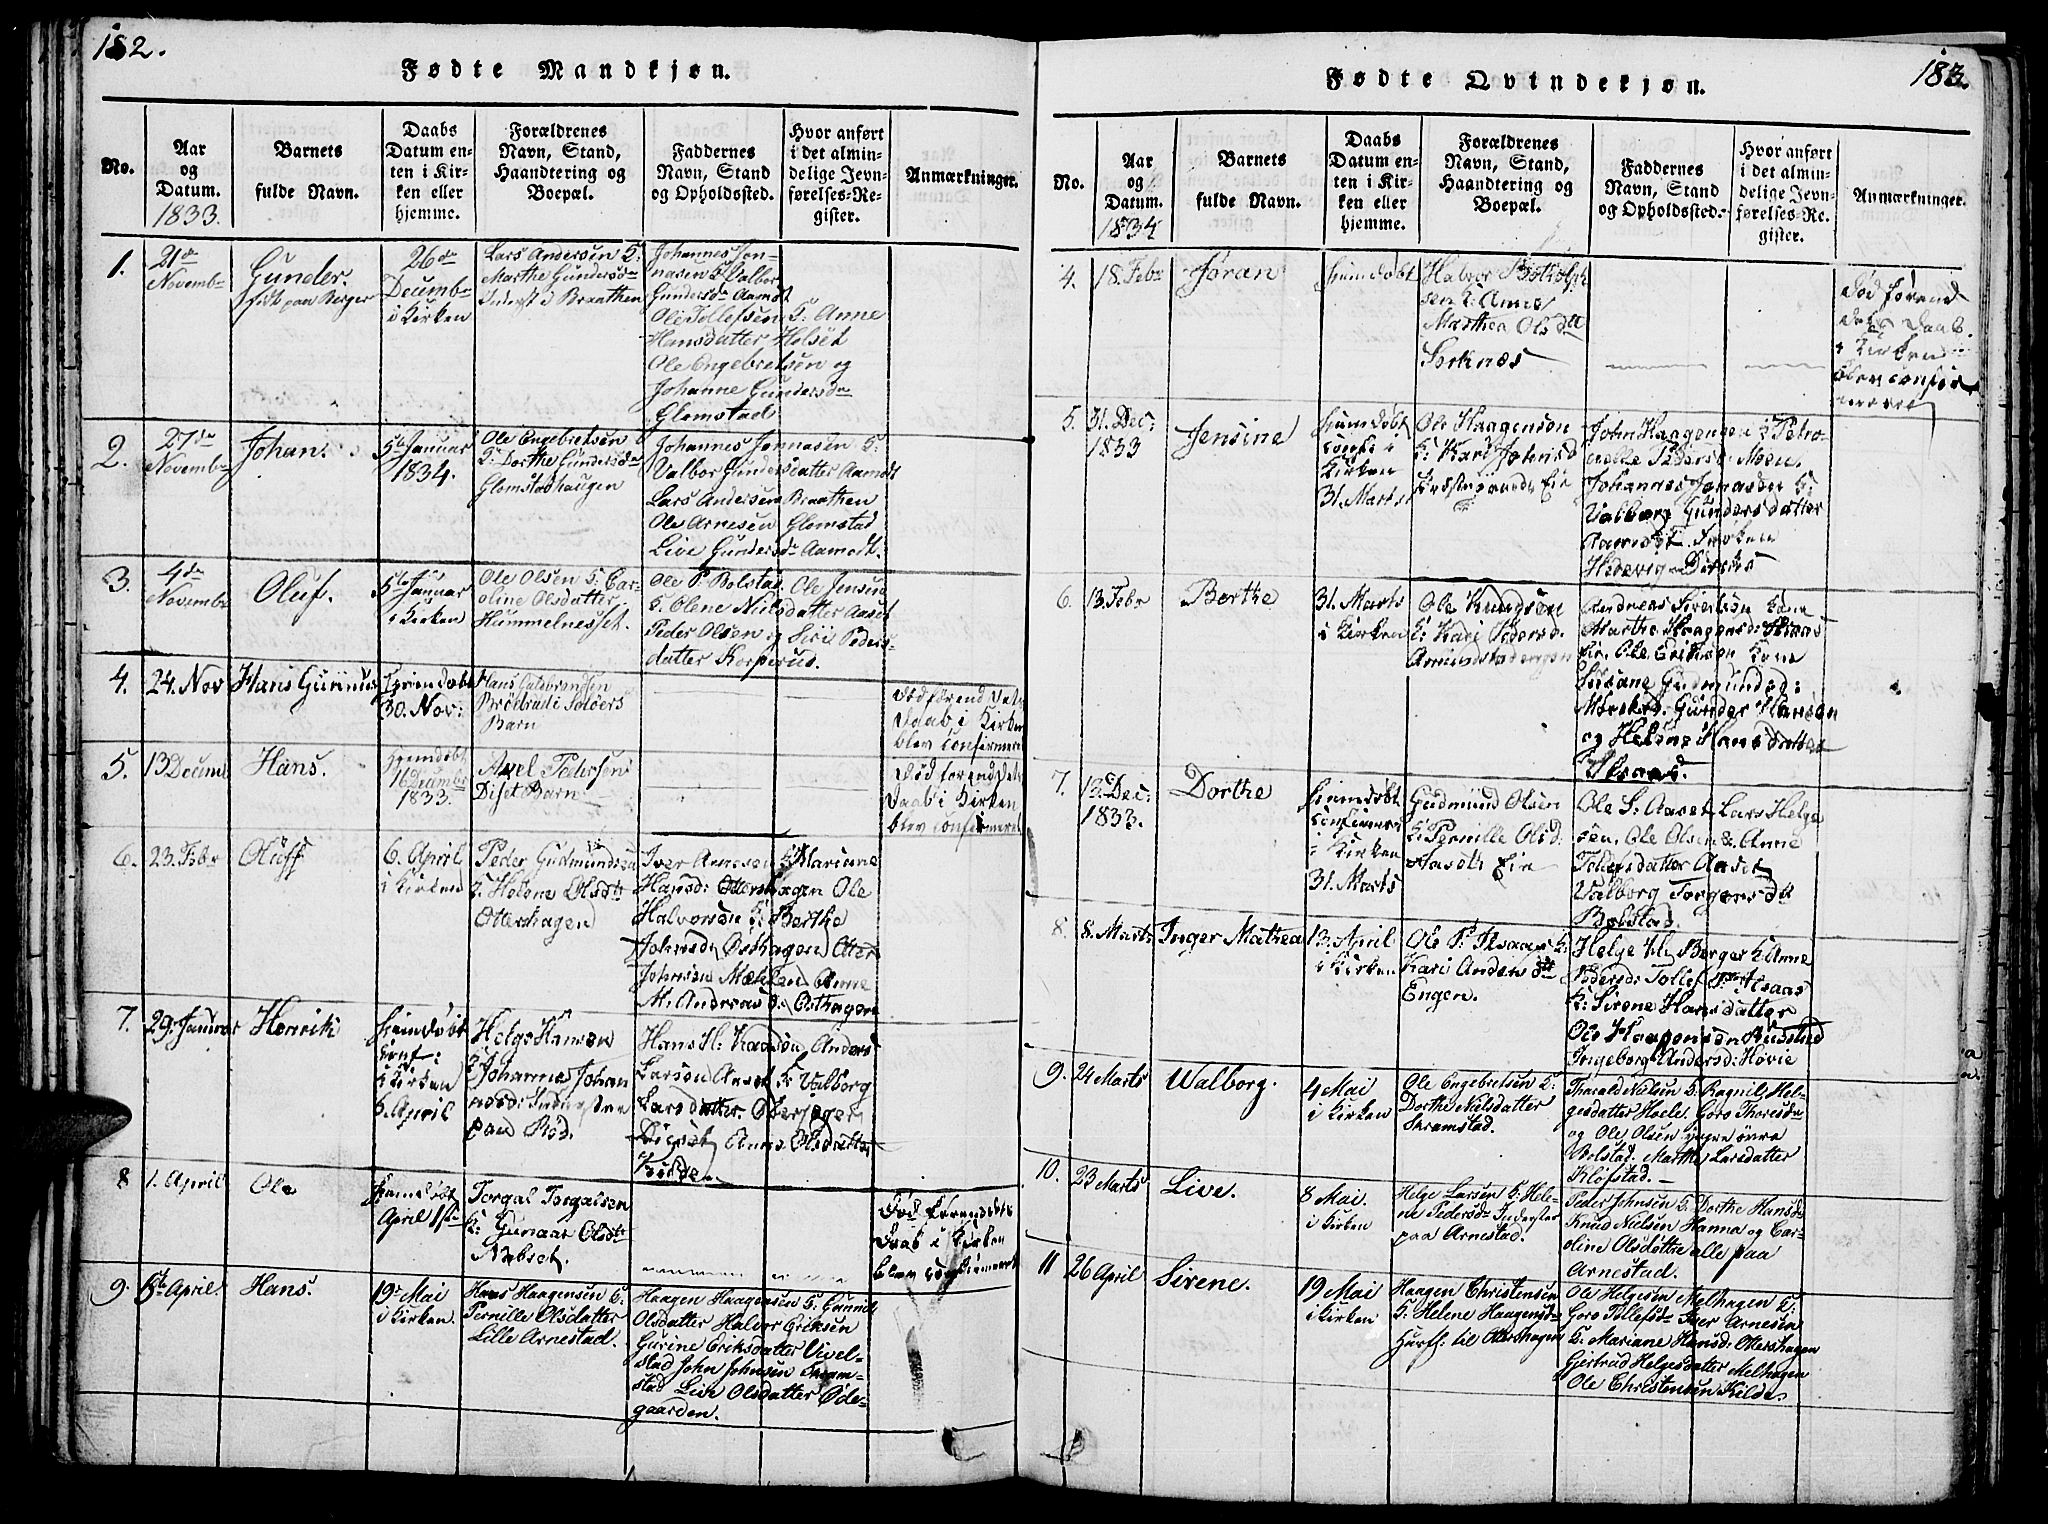 182.
Fødte Mandkjøn.
No.
Aar
og
Datum.
1833.
Barnets
fulde Navn.
Daabs
Datum en-
ten i Kir-
ken eller
hjemme.
Forældrenes
Navn, Stand,
Haandtering og
Boepæl.
Faddernes
Navn, Stand
og Opholdssted.
Hvor anført
i det almin-
delige Jevn-
førelses-Re-
gister.
Anmærkninger.
1.
21de
Novembr
Gunder.
født paa Berger
26de
Decembr
i Kirken
Lars Andersen &
Marthe Gundersdr
Inderst i Braathen
Johannes Jon-
nasen & Valbor
Gundersdr Aamot
Ole Tollefsen & Anne
Hansdatter Holset
Ole Engebretsen og
Johanne Gundersdr
Glomstad
2.
27de
Novembr
Johan.
5te Januar
1834.
Ole Engebretsen
& Dorthe Gundersdr
Glomstadhaugen
Johannes Jonnasen &
Valbor Gundersdatter Aamodt
Lars Andersen Braathen
Ole Arnesen Glomstad
Live Gundersdr Aamodt.
3.
4de
Novembr
Oluf.
5te Januar
i Kirken
Ole Olsen & Car-
oline Olsdatter
Hummelnesset.
Ole P. Bolstad. Ole Jensen
& Olene Nielsdatter Aaset
Peder Olsen og Siri Peders-
datter Korperus.
4.
24. Nov
Hans Gurinus
Hjemdøbt
30. Nov:
Hans Guldbrandsen
Brødrud i Soløers
Barn
Død førend dets
Daab i Kirken
blev confirmeret
5.
13 Decemb
Hans.
Hjemdøbt
16 Decembr
1833.
Axel Pedersen
Diset Barn
Død førend dets
Daab i Kirken
blev confirmeret
6.
23. Febr
Oluff
6. April
i Kirken
Peder Gudmundsen
& Helene Olsdtr
Ottershagen
Iver Arnesen & Mariane
Hansd: Ottershagen Ole
Halvorsen & Berthe
Johnsd: Osthagen Otter
Johnsen Mæhlen Anne
M. Andreasd: Osthagen
7.
29. Januar
Henrik
Hiemdøbt
Conf: i
Kirken
6 April
Helge Hansen
& Johanne Johan
nesd: Inderster
paa Rød.
Hans H: Kaasen Anders
Larsen Aaset & Valborg
Larsdatter Otershagen
Anne Olsdatter
Kilde
8
1. April
Ole
Hiemdøbt
April 1ste
Torgal Torgalsen
& Gunar Olsdtr
Nabset.
Død førend dets
Daab i Kirken
blev confirmeret
9.
5te April.
Hans.
19de Mai
i Kirken.
Hans Haagensen &
Pernille Olsdatter
Lille Arnestad.
Haagen Haagensen & Gunnil
Olsdatter Halvor Eriksen
Gurine Eriksdatter Vivel-
stad John Johnsen Skram-
stad Live Olsdatter Øde-
gaarden.
183.
Fødte Qvindekjøn.
No.
Aar
og
Datum.
1834
Barnets
fulde Navn.
Daabs
Datum en-
ten i Kir-
ken eller
hjemme.
Forældrenes
Navn, Stand,
Haandtering og
Boepæl.
Faddernes
Navn, Stand
og Opholdssted.
Hvor anført
i det almin-
delige Jevn-
førelses-Re-
gister.
Anmærkninger.
4.
18. Febr
Jøran
Hiemdøbt
Halvor Botolph
sen & Anne
Marthea Olsdtr
Sorknæs
Død førend
dets Daab
i Kirken
blev confir
meret
5.
31. Dec:
1833
Jensine
Hiemdøbt
Conf: i
Kirken
31. Marts
Ole Haagensen
& Kari Johnsd
Eie
John Haagensen & Petro-
nelle Pedersd: Moen.
Johannes Jonasen &
Valborg Gundersdatter
Aamodt.
Hedevig Dorthe
6.
13. Febr
Berthe
31. Marts
i Kirken
Ole Knudsen
& Kari Pedersd.
Andreas Sivertsen Kone
Marthe Haagensd:
Eie. Ole Eriksen Kone
Susane Gudmundsd:
Gunder Hansen
og Helene Hansdatter
7.
13. Dec:
1833.
Dorthe
Hiemdøbt
Confirmeret
i Kirken
31. Marts
Gudmund Olsen
& Pernille Olsd:
Aasets Eie
Ole S: Aaset Lars Helge
sen, Ole Olsen & Anne
Tolefsdatter Aaset
Valborg Torgersdtr
Bolstad.
8.
8. Marts
Inger Mathea
13. April
i Kirken
Ole P: Alsaas &
Kari Andersdtr
Engen.
Helge H: Berger & Anne
Pedersd: Tollef P: Alsaas
& Sirene Hansdatter
Ole Haagensen Rustad
Ingeborg Andersd: Hovie
9.
24 Marts
Walborg.
4 Mai
i Kirken
Ole Engebretsen &
Dorthe Nielsdatter
Skramstad.
Tharald Nielsen & Ragnil Hel-
gesdatter Hoele. Goro Thoresdr
og Ole Olsen yngre øvre
Bolstad. Marthe Larsdatter
Kløfstad.
10.
23 Marts
Live.
8 Mai.
i Kirken.
Helge Larsen & Hele-
ne Pedersdr Inderster
paa Arnestad.
Peder Johnsen & Dorthe Hansdr
Knud Nielsen Hanna og Car-
oline Olsdøttre alle paa
Arnestad.
11
26 April
Sirene.
19 Mai
i Kirken
Haagen Christensen
& Helene Haagensdr
Huusf: til Otershagen
Ole Helgesen Melhagen &
Goro Tollefsdr Iver Arnesen
& Mariane Hansd: Otershagen
Giertrud Helgesdatter Melhagen
Ole Christensen Kilde.